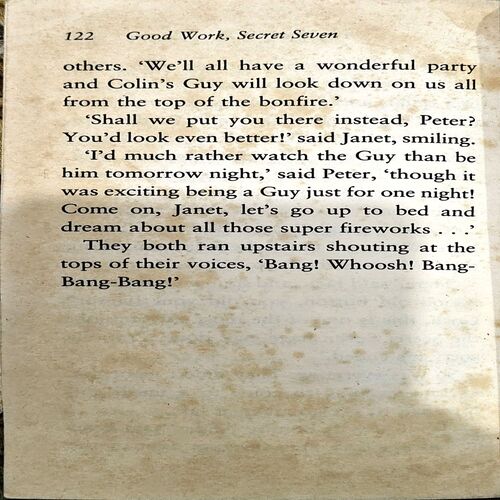 122 Good Work, Secret Seven
others. ‘We’ll all have a wonderful party
and Colin’s Guy will look down on us all
from the top of the bonfire.’
‘Shall we put you there instead, Peter?
You’d look even better!’ said Janet, smiling.
‘I’d much rather watch the Guy than be
him tomorrow night,’ said Peter, ‘though it
was exciting being a Guy just for one night!
Come on, Janet, let’s go up to bed and
dream about all those super fireworks . . .’
They both ran upstairs shouting at the
tops of their voices, ‘Bang! Whoosh! Bang-
Bang-Bang!’